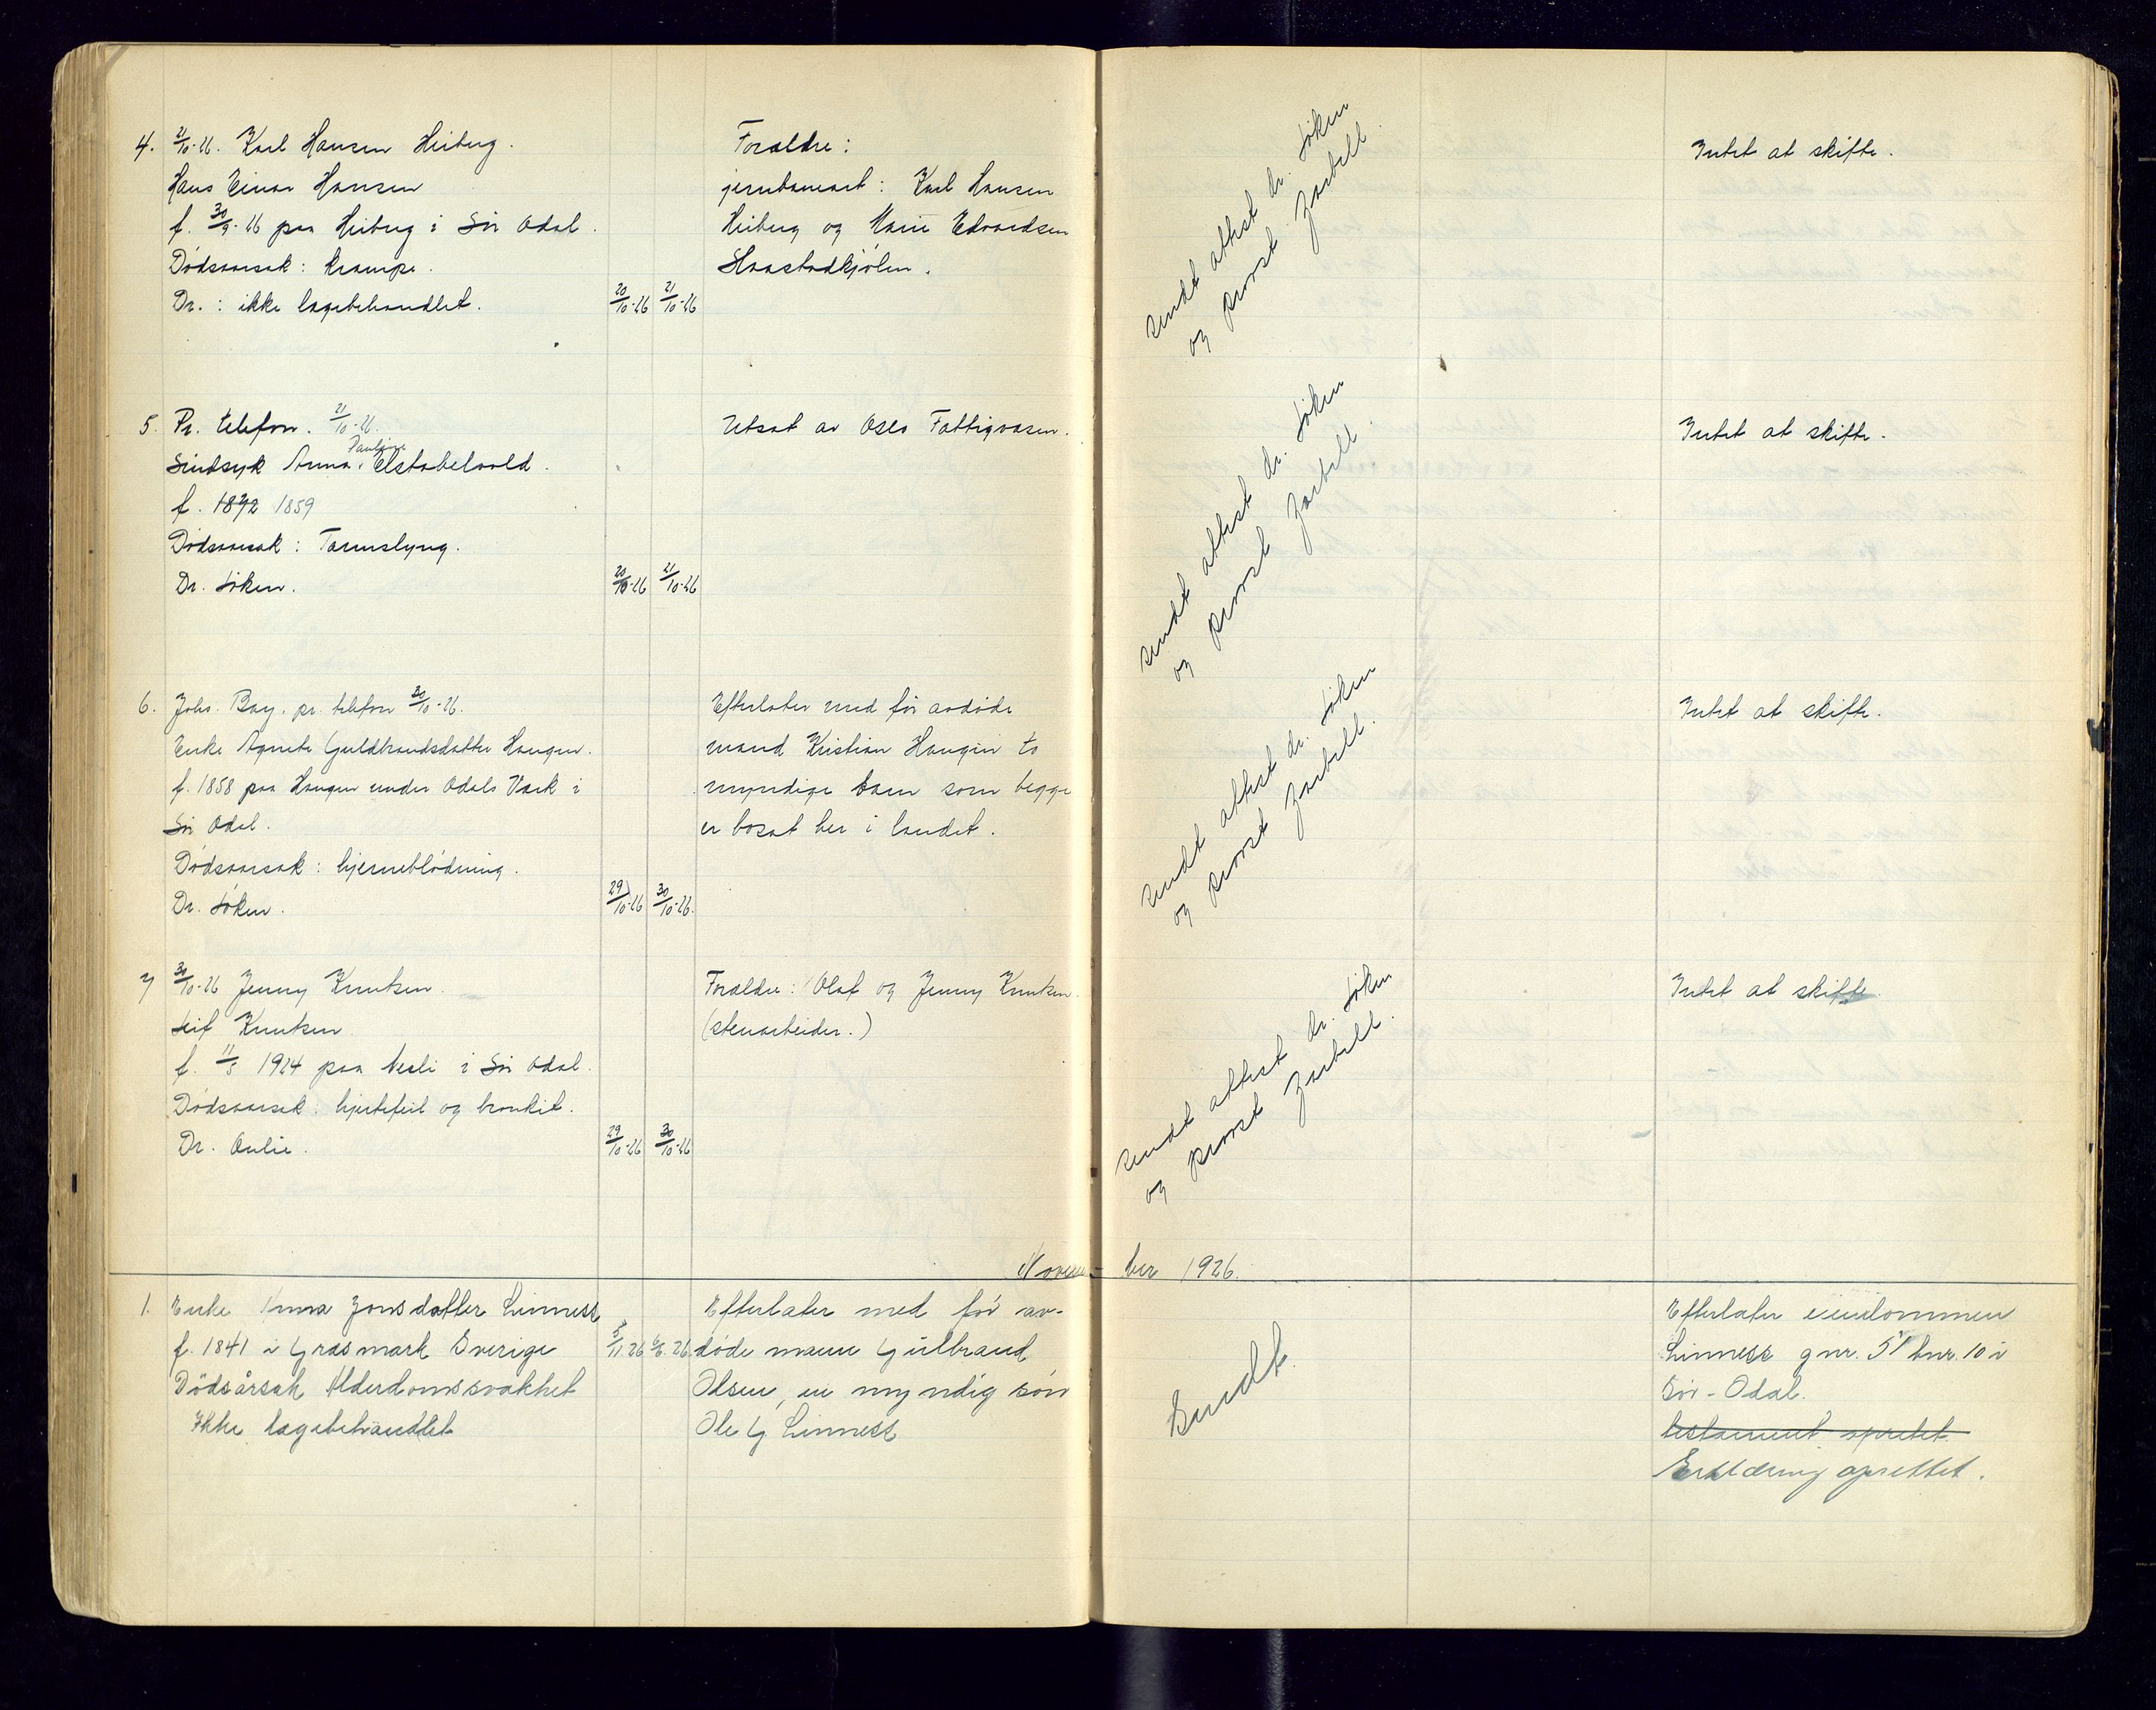 4. 21/10-26. Karl Hansen Heiberg.
Hans Einar Hansen
f. 30/9-26 paa Heiberg i Sör Odal.
Dödsaarsak: krampe.
Dr.: ikke lægebehandlet.
20/10-26 21/10-26
Forældre:
jernbanearb: Karl Hansen
Heiberg og Marie Edvardsen
Haastadkjölen.
sendt attest dr. Löken
og provst Zarbell.
Intet at skifte.
5. Pr. telefon. 21/10-26.
Sindsyk Anna Pauline Elstabelvold.
f. 1872 1859
Dödsaarsak: Tarmslyng.
Dr. Löken.
20/10-26 21/10-26
Utsat av Oslo Fattigvæsen.
sendt attest dr. Löken
og provst Zarbell.
Intet at skifte.
6. Johs. Bay. pr. telefon 30/10-26.
Enke Agnete Guldbrandsdatter Haugen.
f. 1858 paa Haugen under Odals Værk i
Sör Odal.
Dödsaarsak: hjerneblödning.
Dr. Löken.
29/10-26 30/10-26.
Efterlater med för avdöde
mand Kristian Haugen to
myndige barn som begge
er bosat her i landet.
sendt attest dr. Löken
og provst Zarbell.
Intet at skifte.
7 30/10-26 Jenny Knutsen.
Leif Knutsen
f. 11/5 1924 paa Nesli i Sör Odal.
Dödsaarsak: hjertefeil og bronkit.
Dr. Aulie.
29/10-26 30/10-26
Forældre: Olaf og Jenny Knutsen.
(stenarbeider.)
sendt attest dr. Löken
og provst Zarbell.
Intet at skifte.
November 1926.
1. Enke Anna Jonsdatter Linness
f. 1841 i Gräsmark Sverige
Dödsårsak Alderdomssvakhet
Ikke lægebehandlet
5/11.26 6/11.26.
Efterlater med för av-
döde mann Gulbrand
Olsen, en myndig sön
Ole G Linness
Sendt.
Efterlater eiendommen
Linness gnr. 51 bnr. 10 i
Sör-Odal.
testament opretet.
Erklæring oprettet.